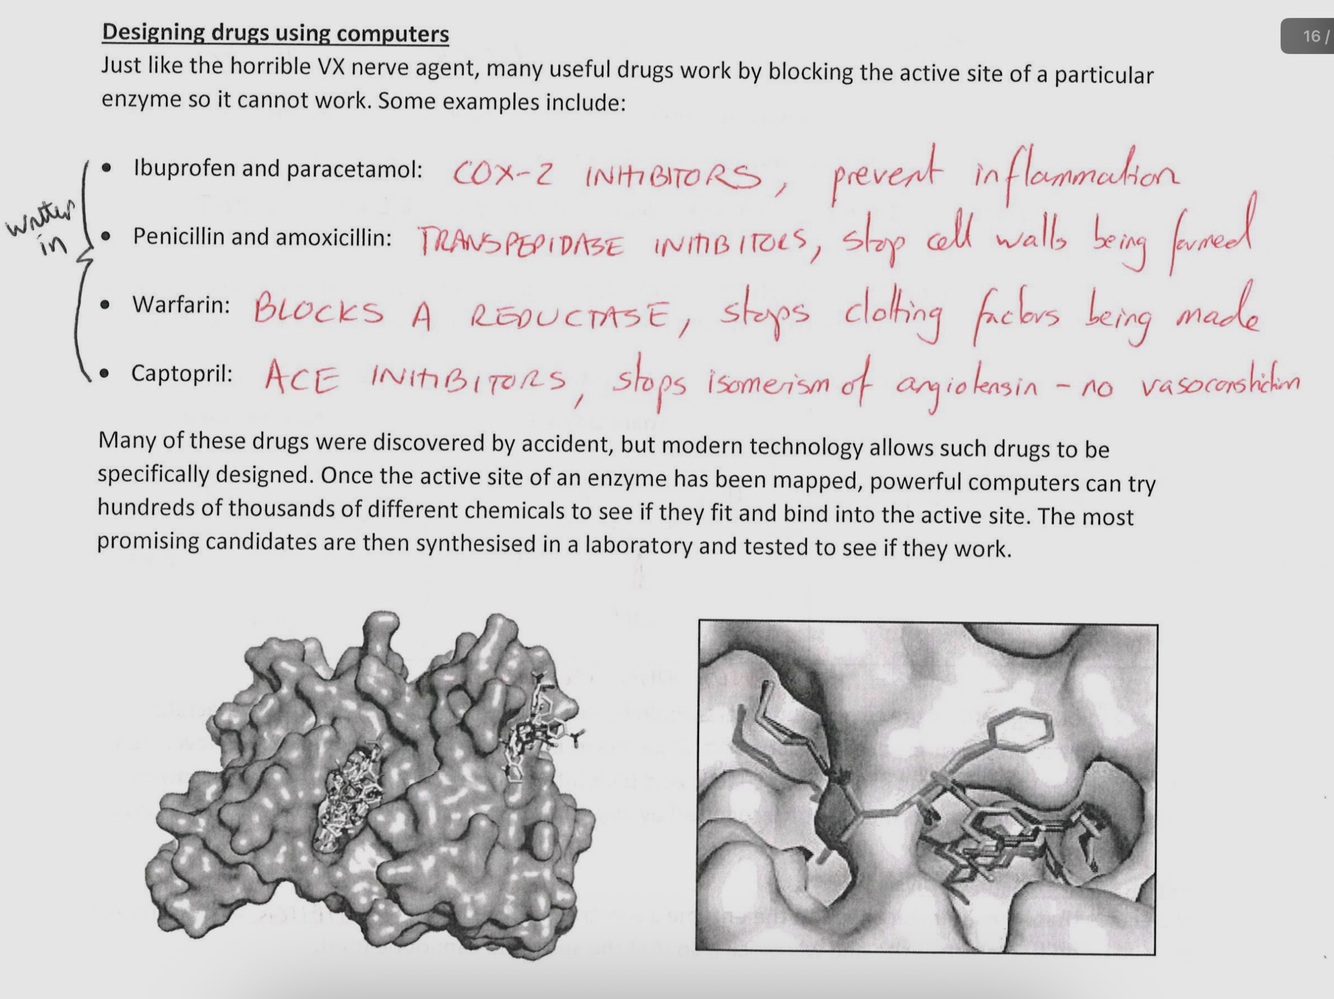 Designing drugs using computers
16 /
Just like the horrible VX nerve agent, many useful drugs work by blocking the active site of a particular
enzyme so it cannot work. Some examples include:
written
in
• Ibuprofen and paracetamol: COX-2 INHIBITORS, prevent inflammation
• Penicillin and amoxicillin: TRANSPEPIDASE INHIBITORS, stop cell walls being formed
• Warfarin: BLOCKS A REDUCTASE, stops clotting factors being made
• Captopril: ACE INHIBITORS, stops isomerism of angiotensin - no vasoconstriction
Many of these drugs were discovered by accident, but modern technology allows such drugs to be
specifically designed. Once the active site of an enzyme has been mapped, powerful computers can try
hundreds of thousands of different chemicals to see if they fit and bind into the active site. The most
promising candidates are then synthesised in a laboratory and tested to see if they work.